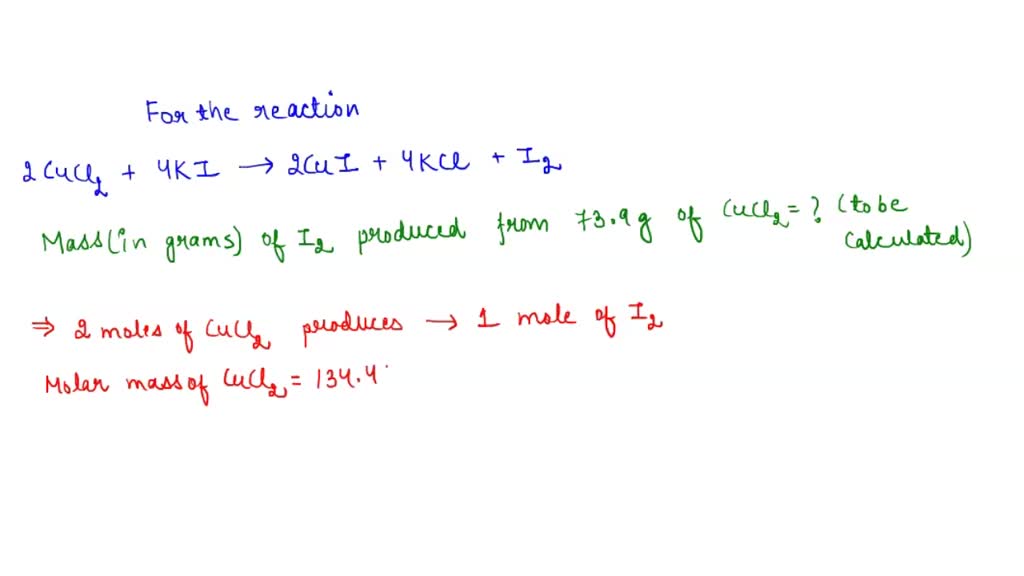 For the reaction
2CuCl₂ + 4KI → 2CuI + 4KCl + I₂
Mass (in grams) of I₂ produced from 73.9g of CuCl₂ = ? (to be calculated)
⇒ 2 moles of CuCl₂ produces → 1 mole of I₂
Molar mass of CuCl₂ = 134.4